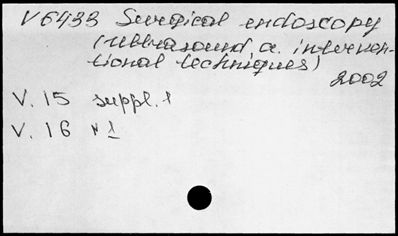 V6433 Surgical endoscopy
(ultrasound a. interven-
tional techniques)
2002
V. 15 suppl. 1
V. 16 N 1